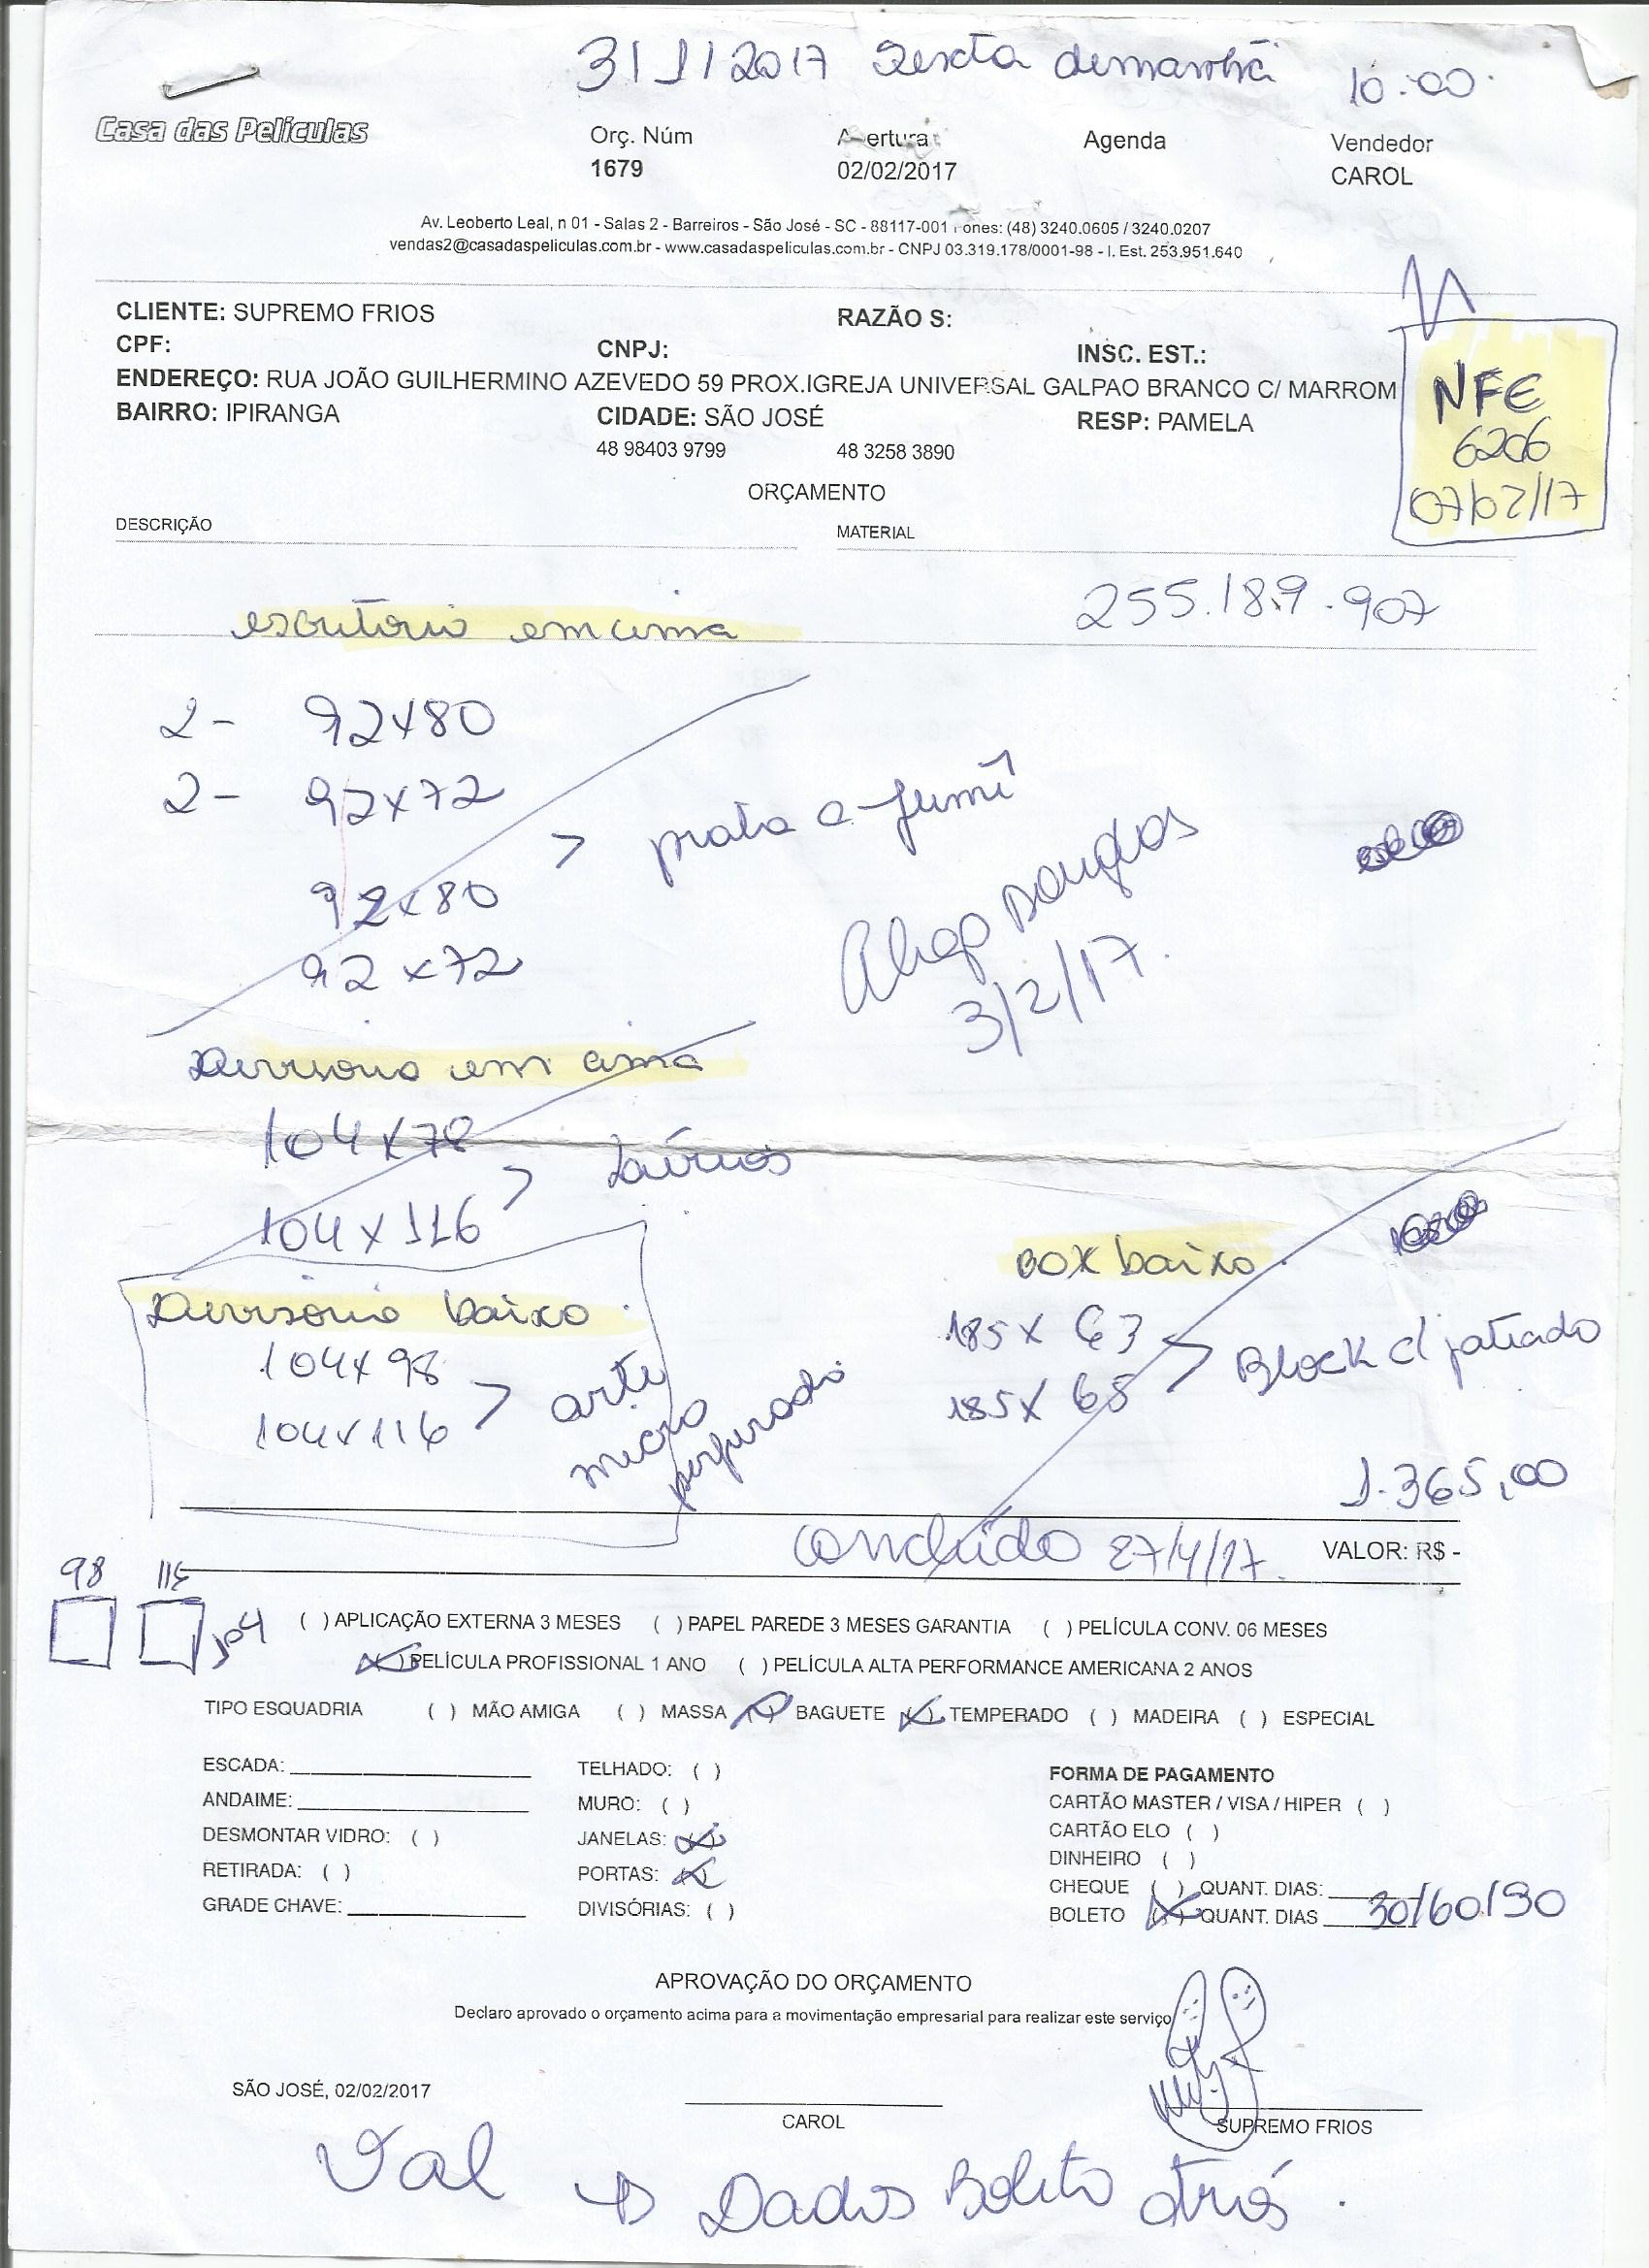 31/1/2017 Sexta demanhã 10:00
Casa das Películas
Orç. Núm Abertura Agenda Vendedor
1679 02/02/2017 CAROL
Av. Leoberto Leal, n 01 - Salas 2 - Barreiros - São José - SC - 88117-001 Fones: (48) 3240.0605 / 3240.0207
vendas2@casadaspeliculas.com.br - www.casadaspeliculas.com.br - CNPJ 03.319.178/0001-98 - I. Est. 253.951.640
CLIENTE: SUPREMO FRIOS RAZÃO S:
CPF: CNPJ: INSC. EST.:
ENDEREÇO: RUA JOÃO GUILHERMINO AZEVEDO 59 PROX.IGREJA UNIVERSAL GALPAO BRANCO C/ MARROM
BAIRRO: IPIRANGA CIDADE: SÃO JOSÉ RESP: PAMELA
48 98403 9799 48 3258 3890
NFE
6206
07/02/17
ORÇAMENTO
DESCRIÇÃO MATERIAL
255.189.907
escritório em cima
2- 92x80
2- 92x72
> prata e fumê
92x80
92x72
Douglas
3/2/17.
Divisorio em cima
104x78
104x116
box baixo
185x 63
185x 68 > Block c/ jateado
Divisorio baixo
104x98
104x116 > arte
micro
perfurado
1.365,00
concluído 27/4/17. VALOR: R$ -
98 115
104
( ) APLICAÇÃO EXTERNA 3 MESES ( ) PAPEL PAREDE 3 MESES GARANTIA ( ) PELÍCULA CONV. 06 MESES
(X) PELÍCULA PROFISSIONAL 1 ANO ( ) PELÍCULA ALTA PERFORMANCE AMERICANA 2 ANOS
TIPO ESQUADRIA ( ) MÃO AMIGA ( ) MASSA (X) BAGUETE (X) TEMPERADO ( ) MADEIRA ( ) ESPECIAL
ESCADA: TELHADO: ( ) FORMA DE PAGAMENTO
ANDAIME: MURO: ( ) CARTÃO MASTER / VISA / HIPER ( )
DESMONTAR VIDRO: ( ) JANELAS: (X) CARTÃO ELO ( )
RETIRADA: ( ) PORTAS: (X) DINHEIRO ( )
GRADE CHAVE: DIVISÓRIAS: ( ) CHEQUE ( ) QUANT. DIAS:
BOLETO (X) QUANT. DIAS 30/60/90
APROVAÇÃO DO ORÇAMENTO
Declaro aprovado o orçamento acima para a movimentação empresarial para realizar este serviço
SÃO JOSÉ, 02/02/2017
CAROL SUPREMO FRIOS
Val Dados Boleto Atrás.